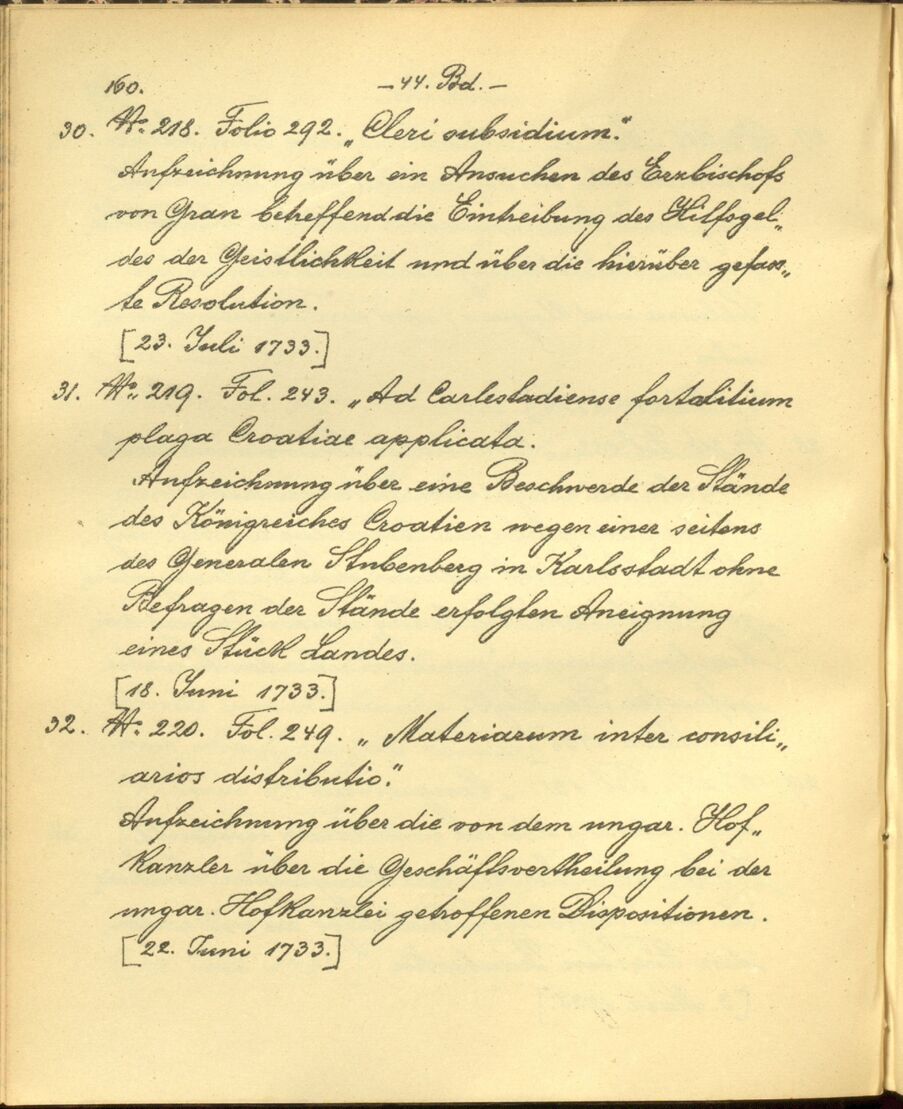 160.
- 44. Bd. -
30. No. 218. Folio 292. „Cleri subsidium."
Aufzeichnung über ein Ansuchen des Erzbischofs
von Gran betreffend die Eintreibung des Hilfsgel„
des der Geistlichkeit und über die hierüber gefass„
te Resolution.
[23. Juli 1733.]
31. No. 219. Fol. 243. „Ad Carlestadiense fortalitium
plaga Croatiae applicata.
Aufzeichnung über eine Beschwerde der Stände
des Königreiches Croatien wegen einer seitens
des Generalen Stubenberg in Karlsstadt ohne
Befragen der Stände erfolgten Aneignung
eines Stück Landes.
[18. Juni 1733.]
32. No. 220. Fol. 249. „Materiarum inter consili„
arios distributio."
Aufzeichnung über die von dem ungar. Hof„
kanzler über die Geschäftsvertheilung bei der
ungar. Hofkanzlei getroffenen Dispositionen.
[22. Juni 1733.]